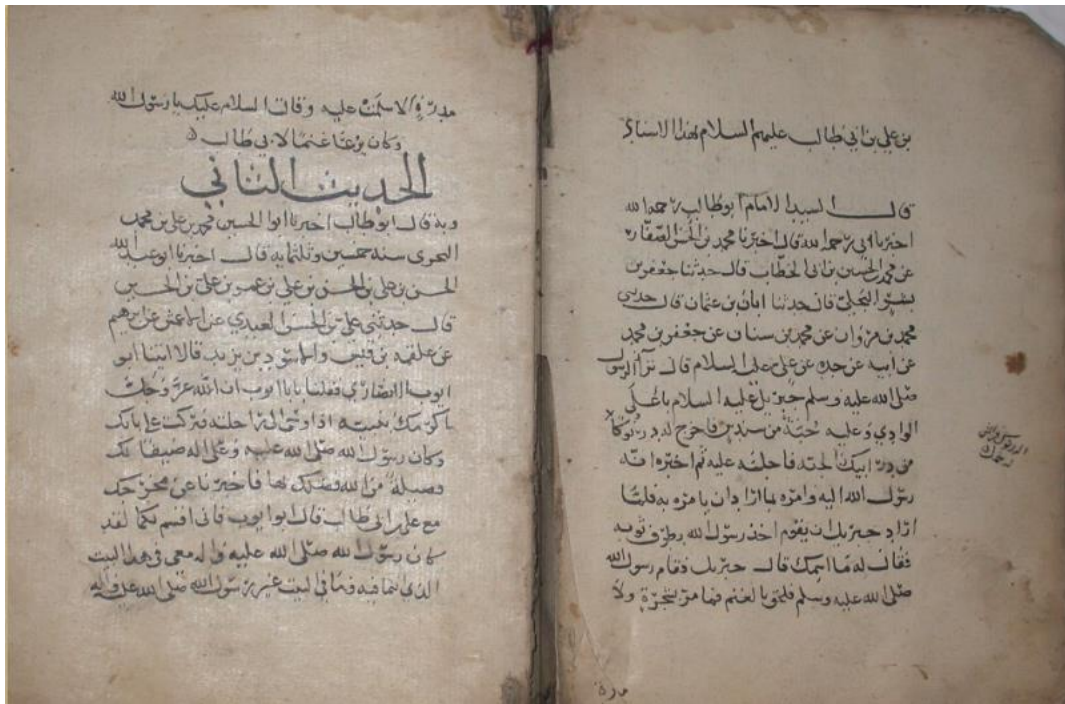 بن علي بن ابي طالب عليهم السلام بهذا الاسناد
قال السيد الامام ابو طالب رحمه الله
اخبرنا ابي رحمه الله قال اخبرنا محمد بن الحسن الصفار
عن محمد بن الحسين بن ابي الخطاب قال حدثنا جعفر بن
بشير البجلي قال حدثنا ابان بن عثمان قال حدثني
محمد بن مروان عن محمد بن سنان عن جعفر بن محمد
عن ابيه عن جده عن علي عليه السلام قال نزل
صلى الله عليه وسلم جبريل عليه السلام باعلى
الوادي وعليه جبة من سندس فاخرج له درنوكا
من درانيك الجنة فاجلسه عليه ثم اخبره انه
رسول الله اليه وامره بما اراد ان يامره به فلما
اراد جبريل ان يقوم اخذ رسول الله بطرف ثوبه
فقال له ما اسمك قال جبريل فقام رسول الله
صلى الله عليه وسلم فلحق بالغنم فما مر بشجرة ولا
مدرة
مدرة الا سلمت عليه وقالت السلام عليك يا رسول الله
وكان يرعا غنما لابي طالب
الحديث الثاني
وبه قال ابو طالب اخبرنا ابو الحسين محمد بن علي بن محمد
البحري سنة خمسين وثلثمايه قال اخبرنا ابو عبد الله
الحسن بن علي بن الحسن بن علي بن عمر بن علي بن الحسين
قال حدثني علي بن الحسن العبدي عن الاعمش عن ابرهيم
عن علقمه بن قيس والاسود بن يزيد قالا اتينا ابو
ايوب الانصاري فقلنا يابا ايوب ان الله عز وجل
اكرمك بنبيه اذ اوحى الى راحلته فبركت على بابك
وكان رسول الله صلى الله عليه وعلى اله ضيفا لك
فضيلة من الله فضلك بها فاخبرنا عن مخرجك
مع علي بن ابي طالب قال ابو ايوب فاني اقسم لكما لقد
كان رسول الله صلى الله عليه واله معي في هذا البيت
الذي انتما فيه وما في البيت غير رسول الله صلى الله عليه واله